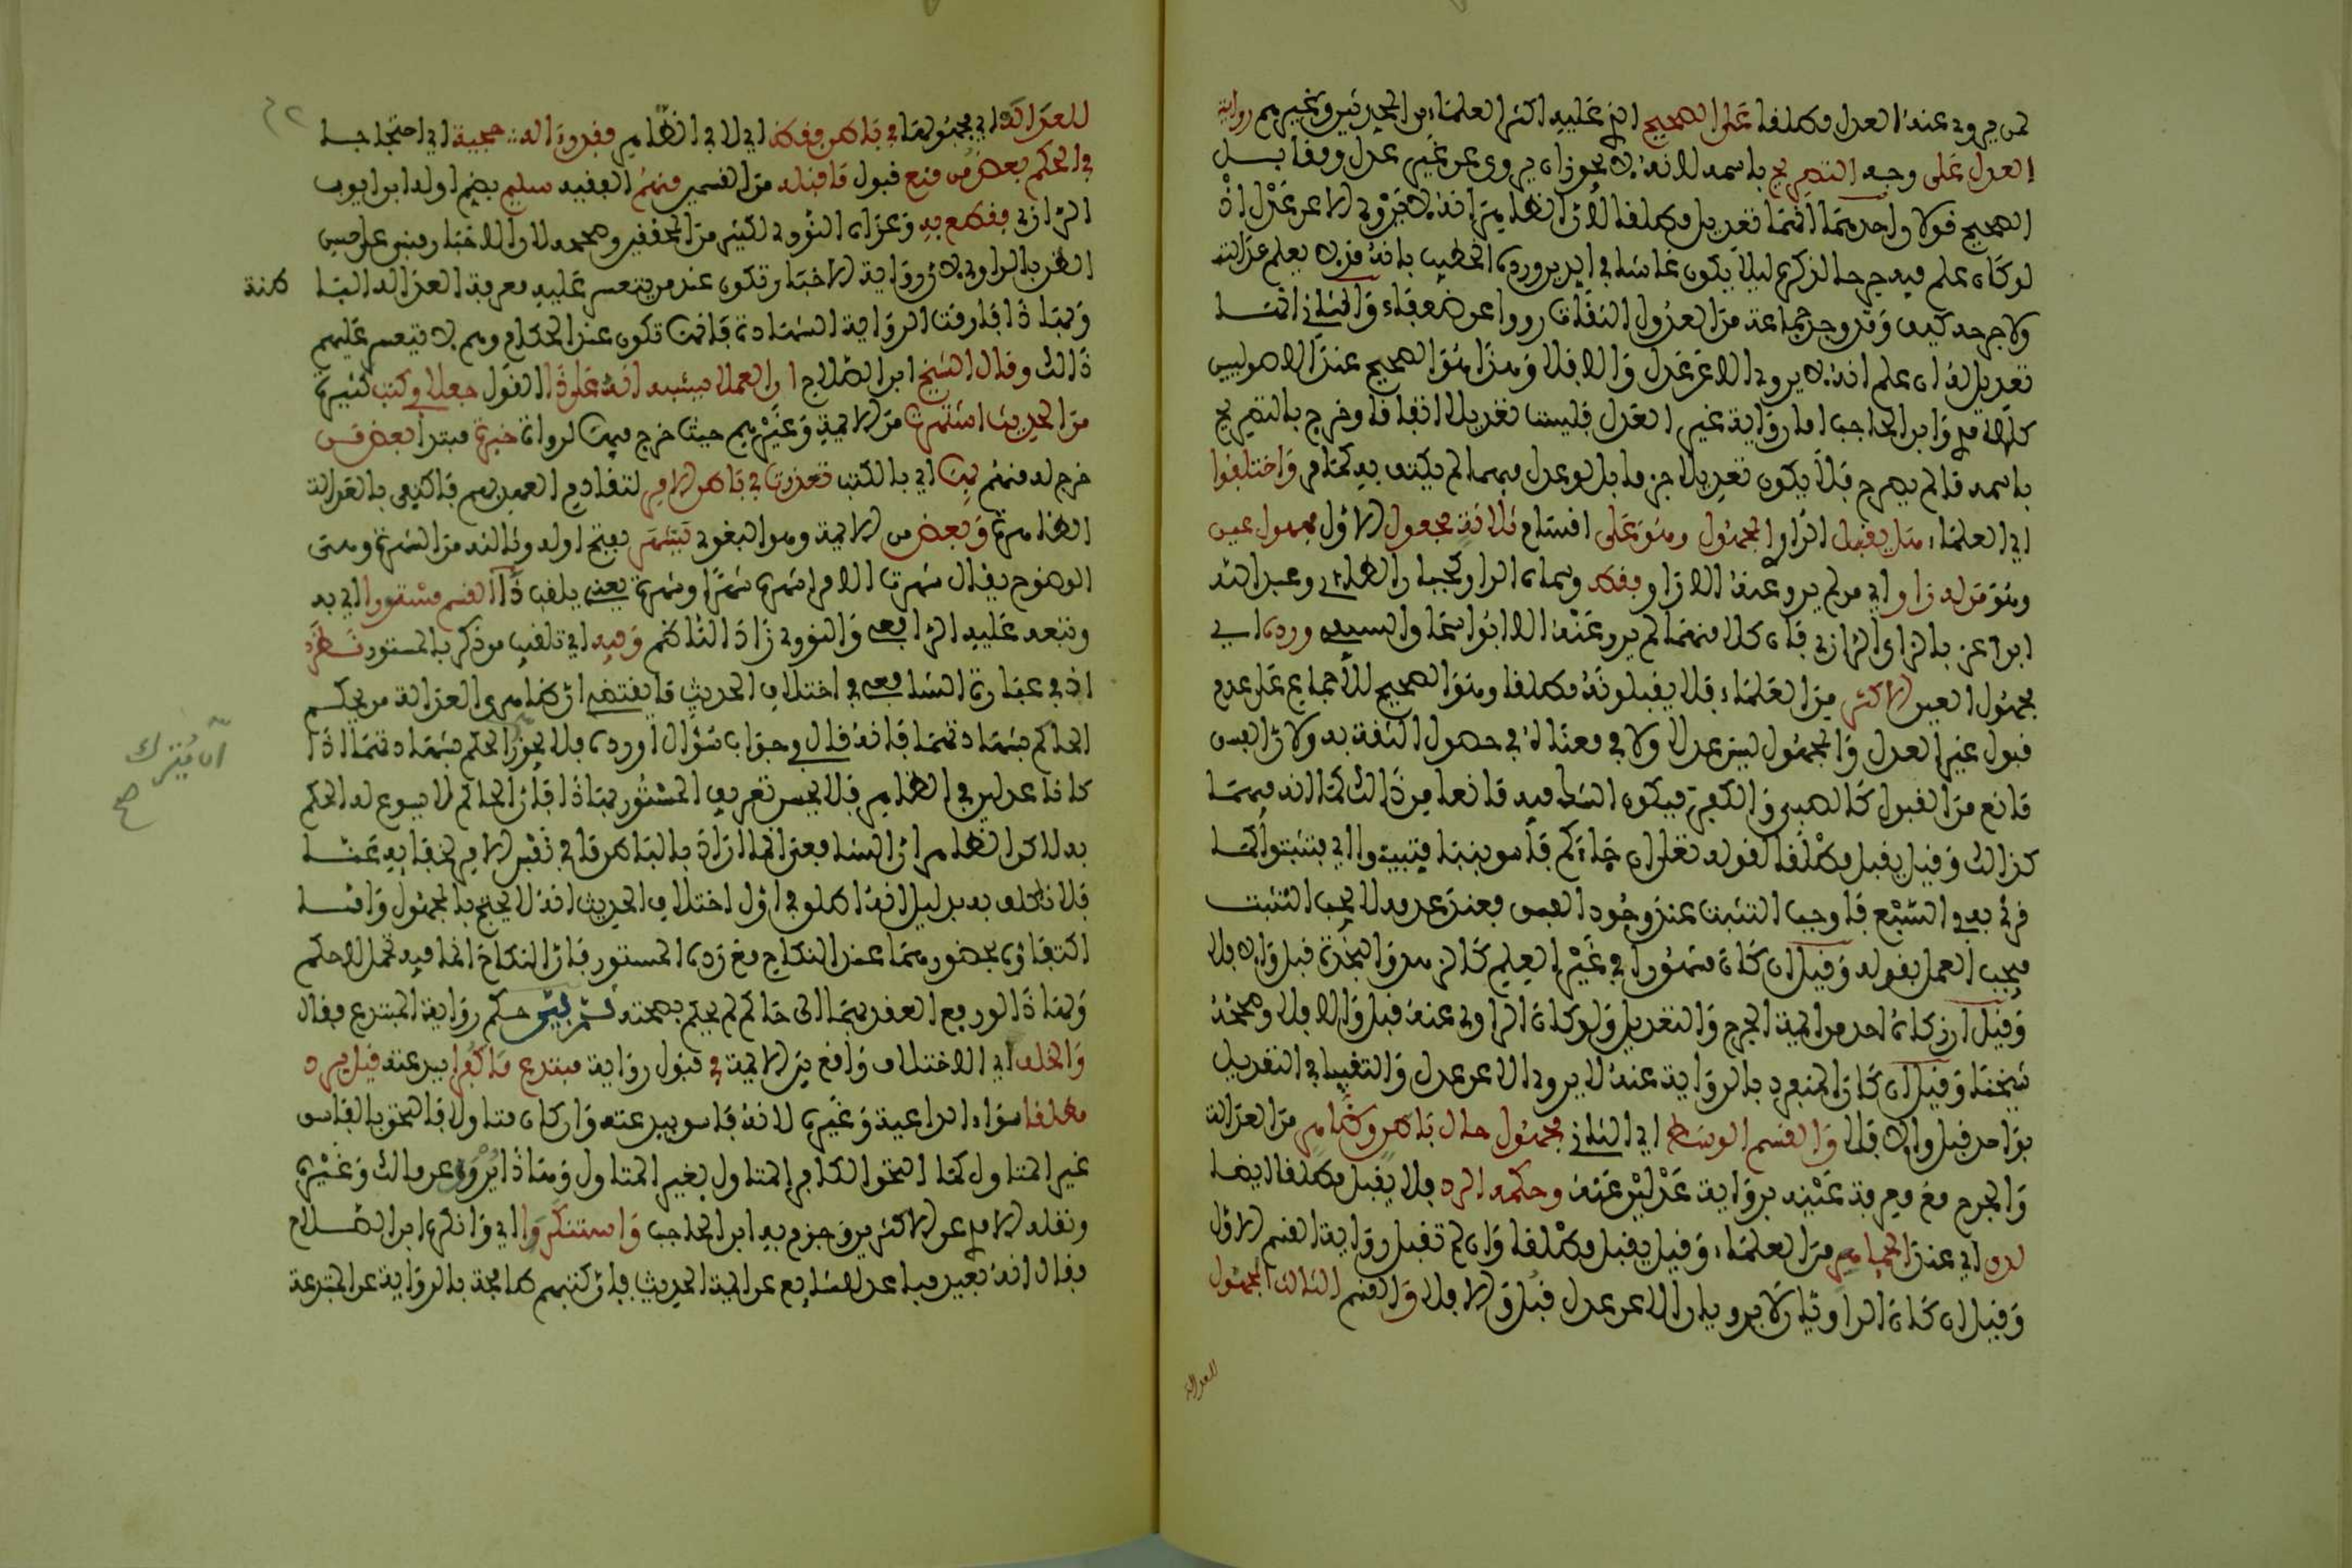 لمن يروي عنه العدل مطلقا على الصحيح الذي عليه اكثر العلماء من المحدثين وغيرهم رواية
العدل على وجه التصريح باسمه لانه يجوز ان يروي عن غير عدل ومقابل
الصحيح قولان احدهما انها تعديل مطلقا لان الظاهر انه لا يروي الا عن عدل اذ
لو كان علم فيه جرحا لذكره ليلا يكون غاشا في الدين ورده الخطيب بانه قد لا يعلم عدالته
ولا جرحه كيف وقد وجد جماعة من العدول الثقات رووا عن ضعفاء والثاني انها
تعديل له ان علم انه لا يروي الا عن عدل والا فلا وهذا هو الصحيح عند الاصوليين
كالامدي وابن الحاجب اما رواية غير العدل فليست تعديلا اتفاقا وخرج بالتصريح
باسمه ما لم يصرح فلا يكون تعديلا جزما بل لو عدل مبهما لم يكتف به كما مر واختلفوا
اي العلماء هل يقبل الراوي المجهول وهو على اقسام ثلاثة مجعول الاول مجهول عين
وهو من له راو اي من لم يرو عنه الا راو فقط وسماه الراوي كجبار الطائي وعبد الله
ابن اعز بالزاي الرازي فان كلا منهما لم يرو عنه الا ابو اسحاق السبيعي ورده اي
مجهول العين الاكثر من العلماء فلا يقبلونه مطلقا وهو الصحيح للاجماع على عدم
قبول غير العدل والمجهول ليس عدلا ولا في معناه في حصول الثقة به ولان الفسق
مانع من القبول كالصبى والكفر فيكون الشك فيه مانعا من ذالك كما انه فيهما
كذالك وقيل يقبل مطلقا لقوله تعالى ان جاءكم فاسق بنبإ فتبينوا اي فتثبتوا كما
قرئ به في السبع فاوجب التثبت عند وجود الفسق فعند عدمه لا يجب التثبت
فيجب العمل بقوله وقيل ان كان مشهورا في غير العلم كالزهد والنجدة قبل والا فلا
وقيل ان زكاه احد من ايمة الجرح والتعديل ولو كان الراوي عنه قبل والا فلا وصححه
شيخنا وقيل ان كان المنفرد بالرواية عنه لا يروي الا عن عدل واكتفينا في التعديل
بواحد قبل والا فلا والقسم الوسط اي الثاني مجهول حال باطن وظاهر من العدالة
والجرح مع معرفة عينه برواية عدلين عنه وحكمه الرد فلا يقبل مطلقا ايضا
لدى اي عند الجماهر من العلماء وقيل يقبل مطلقا وان لم تقبل رواية القسم الاول
وقيل ان كان الراويان لا يرويان الا عن عدل قبل والا فلا والقسم الثالث المجهول
للعدالة
للعدالة اي مجهولها في باطن فقط اي لا في الظاهر فقد رءا له حجية اي احتجاجا
في الحكم بعض من منع قبول ما قبله من القسمين منهم الفقيه سليم بضم اوله ابن ايوب
الرازي فقطع به وعزاه النووي لكثير من المحققين وصححه لان الاخبار مبني على حسن
الظن بالراوي لان رواية الاخبار تكون عند من يتعسر عليه معرفة العدالة البا طنة
وبهاذا فارقت الرواية الشهادة فانها تكون عند الحكام وهم لا يتعسر عليهم
ذالك وقال الشيخ ابن الصلاح ان العمل يشبه انه على ذا القول جعلا في كتب كثيرة
من الحديث اشتهرت من الايمة وغيرهم حيث خرج فيها لرواة خبرة مبتدا بعض من
خرج له منهم بها اي بالكتب تعذرت في باطن الامر لتقادم العهد بهم فاكتفي بالعدالة
الظاهرة وبعض من الايمة وهو البغوي يشهر بفتح اوله وثالثه من الشهرة وهي
الوضوح يقال شهرت الامر اشهره شهرا وشهرة يعني يلقب ذا القسم مستورا اي به
وتبعه عليه الرافعي والنووي زاد الناظم وفيه اي تلقيب من ذكر بالمستور نظر
اذ في عبارة الشافعي في اختلاف الحديث ما يقتضي ان ظاهري العدالة من يحكم
الحاكم بشهادتهما فانه قال في جواب سؤال اورده فلا يجوز الحكم بشهادتهما اذا
كانا عدلين في الظاهر فلا يحسن تعريف المستور بهاذا فان الحاكم لا يسوغ له الحكم
به لاكن الظاهر ان الشافعي انما اراد بالباطن ما في نفس الامر لخفايه عنا
فلا نكلف به بدليل انه اطلق في اول اختلاف الحديث انه لا يحتج بالمجهول واما
اكتفاؤه بحضورهما عند النكاح مع رده المستور فان النكاح انما فيه تحمل لا حكم
ولهاذا لو رفع العقد بهما الى حاكم لم يحكم بصحته ثم بين حكم رواية المبتدع فقال
والخلف اي الاختلاف واقع بين الايمة في قبول رواية مبتدع ما كفرا ببدعته قيل يرد
مطلقا سواء الداعية وغيره لانه فاسق ببدعته وان كان متاولا فالتحق بالفاسق
غير المتاول كما التحق الكافر المتاول بغير المتاول وهاذا يروى عن مالك وغيره
ونقله الامدي عن الاكثرين وجزم به ابن الحاجب واستنكروا اي وانكره ابن الصلاح
وقال انه بعيد مباعد للشايع عن ايمة الحديث فان كتبهم طافحة بالرواية عن المبتدعة
ان يترك
صح